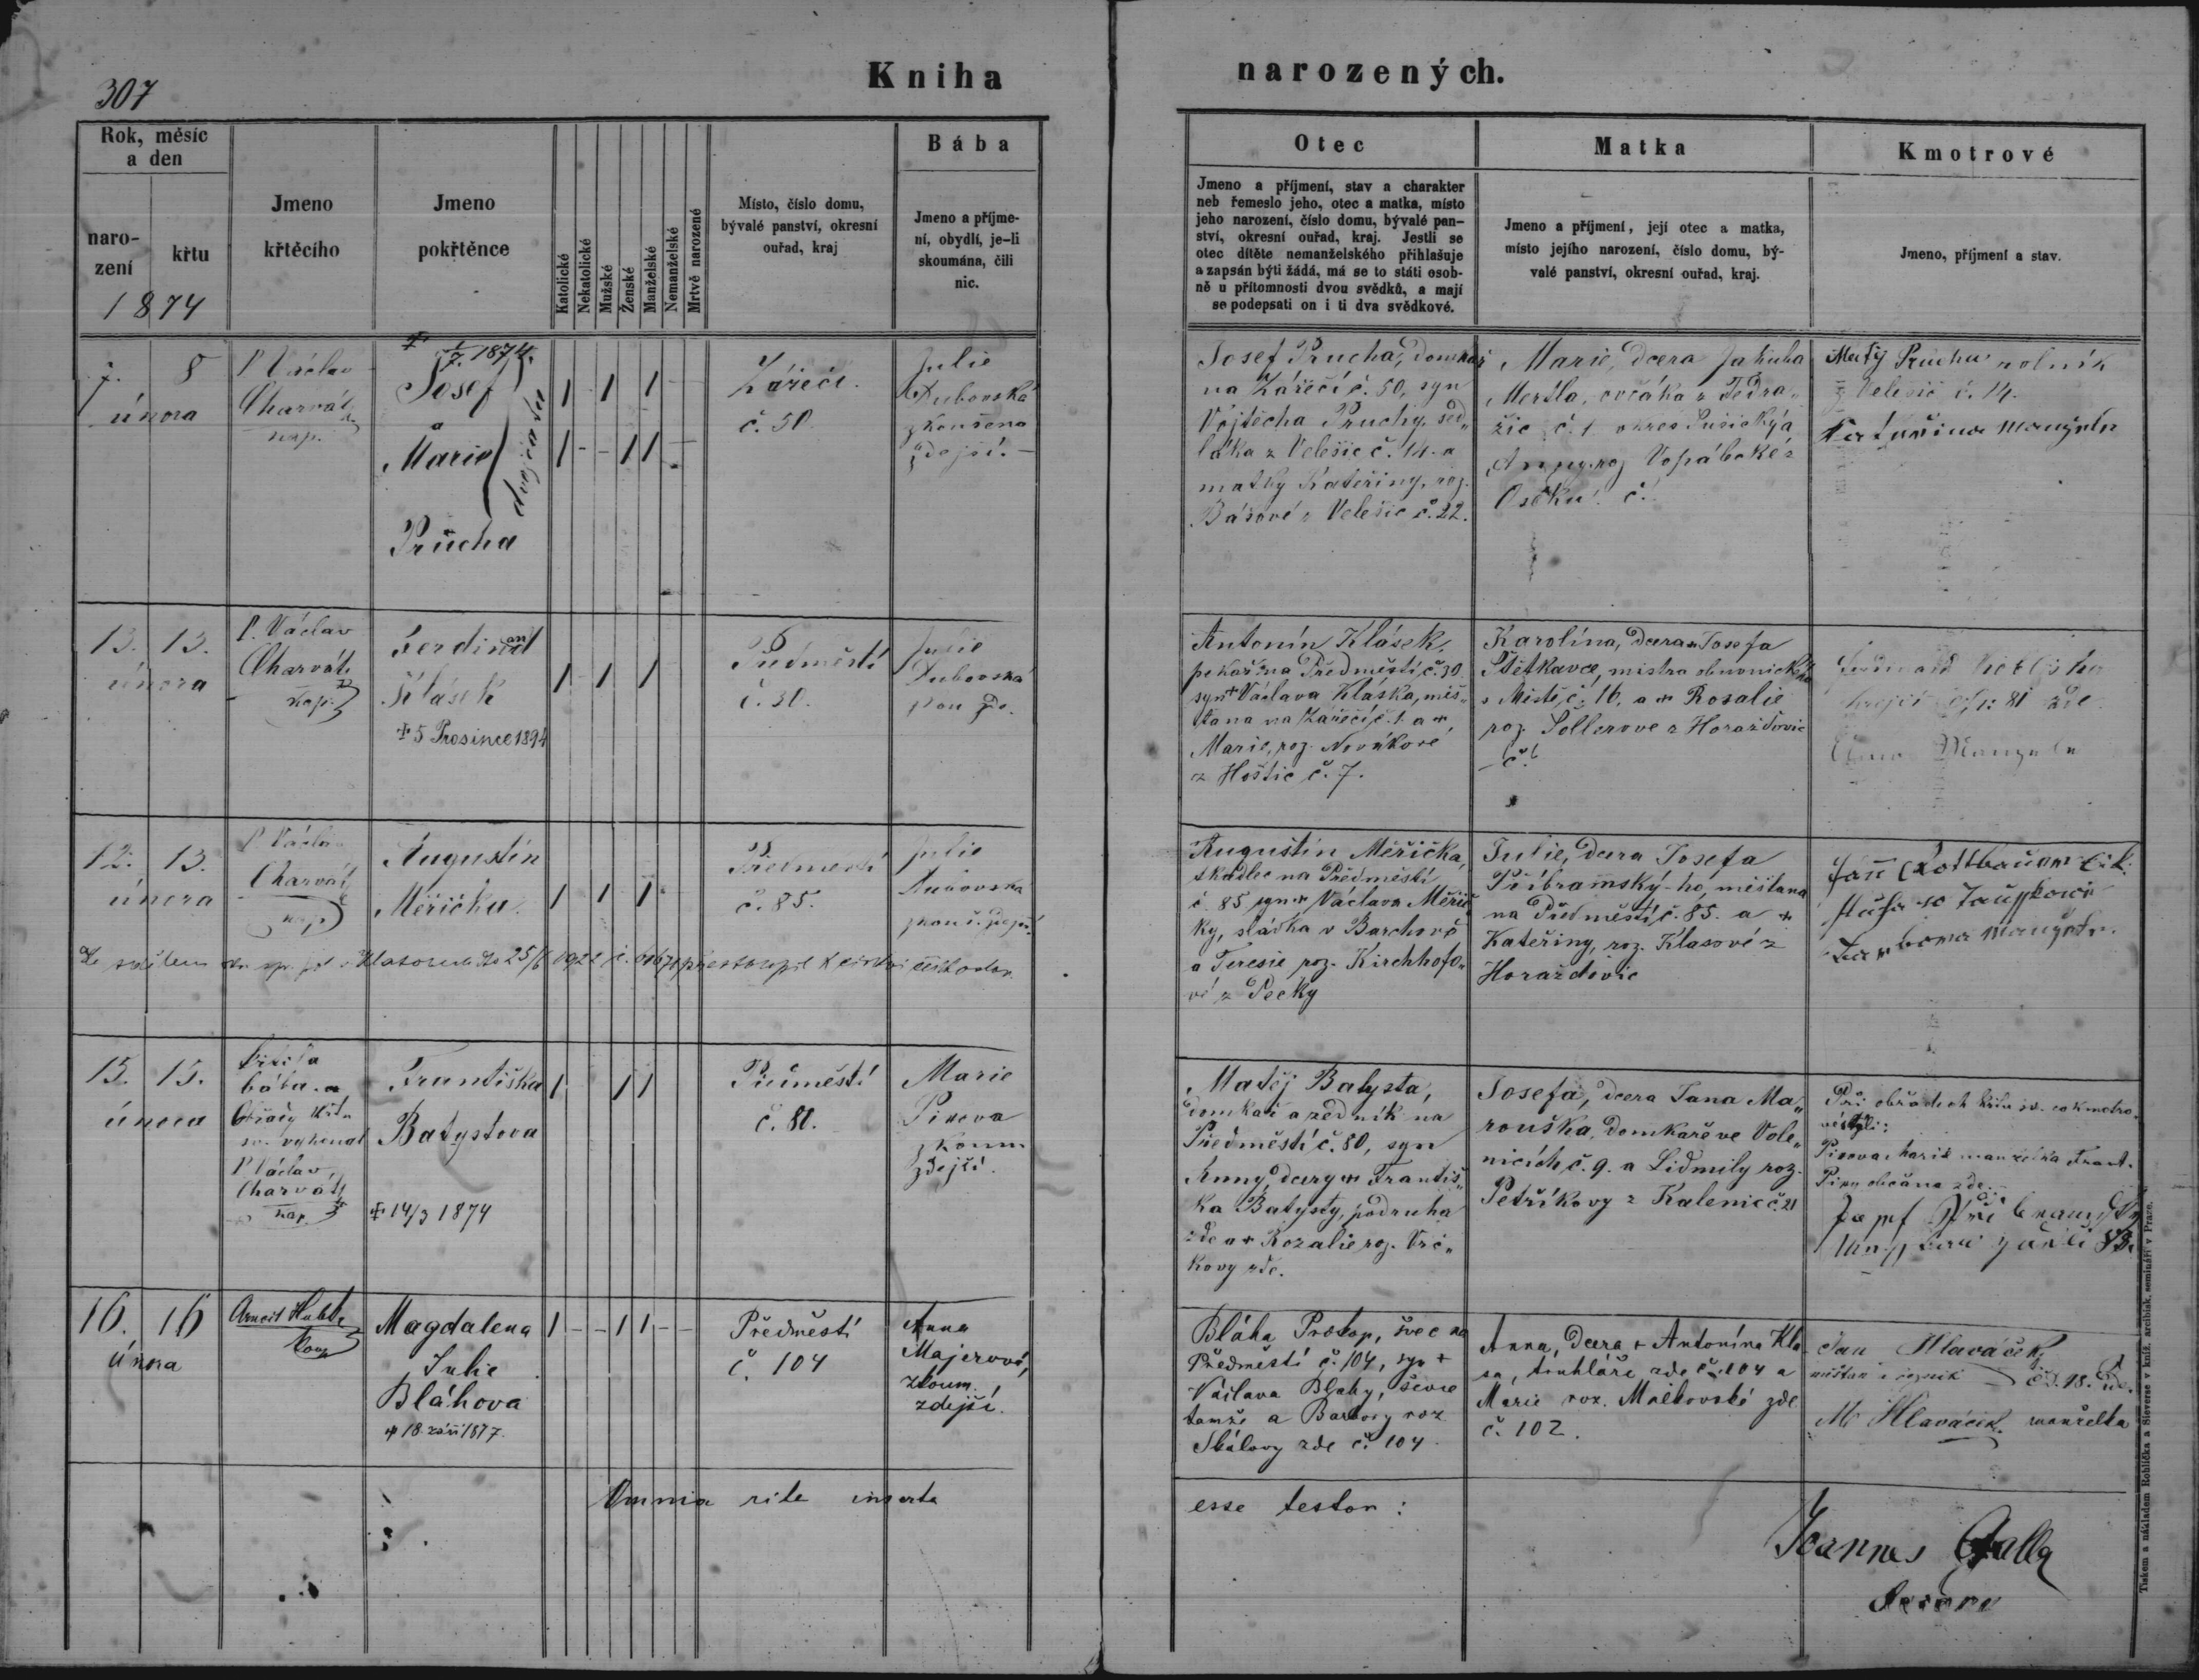 307
Kniha narozených.
Rok, měsíc
a den
naro-
zení
křtu
1874
Jmeno
křtěcího
Jmeno
pokřtěnce
Katolické
Nekatolické
Mužské
Ženské
Manželské
Nemanželské
Mrtvě narozené
Místo, číslo domu,
bývalé panství, okresní
ouřad, kraj
Bába
Jmeno a příjme-
ní, obydlí, je-li
skoumána, čili
nic.
Otec
Jmeno a příjmení, stav a charakter
neb řemeslo jeho, otec a matka, místo
jeho narození, číslo domu, bývalé pan-
ství, okresní ouřad, kraj. Jestli se
otec dítěte nemanželského přihlašuje
a zapsán býti žádá, má se to státi osob-
ně u přítomnosti dvou svědků, a mají
se podepsati on i ti dva svědkové.
Matka
Jmeno a příjmení, její otec a matka,
místo jejího narození, číslo domu, bý-
valé panství, okresní ouřad, kraj.
Kmotrové
Jmeno, příjmení a stav.
7. 8
února
P Václav
Charvát
kap.
1874.
Josef
a
Marie
dvojčata
Průcha
1 1 1
1 1 1
Zářečí
č. 50.
Julie
Dubovská
zkoušená
zdejší.
Josef Prucha, domkář
na Zářečí č. 50, syn
Vojtěcha Pruchy, sed„
láka z Velešic č. 14. a
matky Kateřiny, roz.
Bášové z Velešic č. 22.
Marie, dcera Jakuba
ovčáka z Tedra„
žic č. 1 okres Sušický a
Anny, roz
Oseku č.
Matěj Průcha rolník
z Velešic č. 14.
Kateřina manželka
13. 13.
února
P. Václav
Charvát
kap.
Ferdinand
Klásek
+ 5 Prosince 1894
1 1 1
Předměstí
č. 30.
Julie
Dubovská
Antonín Klásek,
pekař na Předměstí č. 30
syn + Václava Kláska, měš„
ťana na Zářečí č. 1. a +
Marie, roz. Novákové
z Hoštic č. 7.
Karolína, dcera + Josefa
Štětkavce, mistra obuvnického
v Místě č. 16, a + Rosalie
roz. Šollerove z Horažďovic
č. 6
81 zde
12. 13.
února
P Václav
Charvát
kap
Augustin
Měřička
1 1 1
Předměstí
č. 85.
Julie
Dubovská
Augustin Měřička,
tkadlec na Předměstí
č. 85 syn + Václava Měřič„
ky, sládka v Barchově
a Teresie roz. Kirchhofo„
vé z Pecky
Julie, dcera Josefa
Příbramský-ho, měšťana
na Předměstí, č. 85. a +
Kateřiny, roz. Klasové z
Horažďovic
manželka
15. 15.
února
Křtila
bába a
Obřady křtu
sv. vykonal
P Václav
Charvát
kap.
Františka
Batystova
+ 14/3 1874
1 1 1
Předměstí
č. 80.
Marie
Pixova
zkoum
zdejší.
Matěj Batysta,
domkář a zedník na
Předměstí č. 80, syn
Anny, dcery + Františ„
ka Batysty, podruha
zde a + Rozalie roz. Vrč„
kovy zde.
Josefa, dcera Jana Ma„
rouška, domkáře ve Vole„
nicích č. 9. a Lidmily roz.
Petříkovy z Kalenic č. 21
Při obřadech křtu sv. co kmotro„
vé byli:
Pixova Marie manželka Frant.
Pixy občana zde.
16. 16
února
kap
Magdalena
Julie
Bláhova
+ 18. září 1877.
1 1 1
Předměstí
č. 104
Anna
Majerová,
zkoum.
zdejší.
Bláha Prokop, švec na
Předměstí č. 104, syn +
Václava Bláhy, ševce
tamže a Barbory roz
Skálovy zde č. 104
Anna, dcera + Antonína Kla
sa, truhláře zde č. 104 a
Marie roz. Malkovské zde
č. 102.
Jan Hlaváček
měšťan i řezník čd. 18. zde.
M Hlaváček manželka
Omnia rite inserta esse testor:
Joannes Galla
Tiskem a nákladem Rohlíčka a Sieverse v kníž. arcibisk. semináři v Praze.